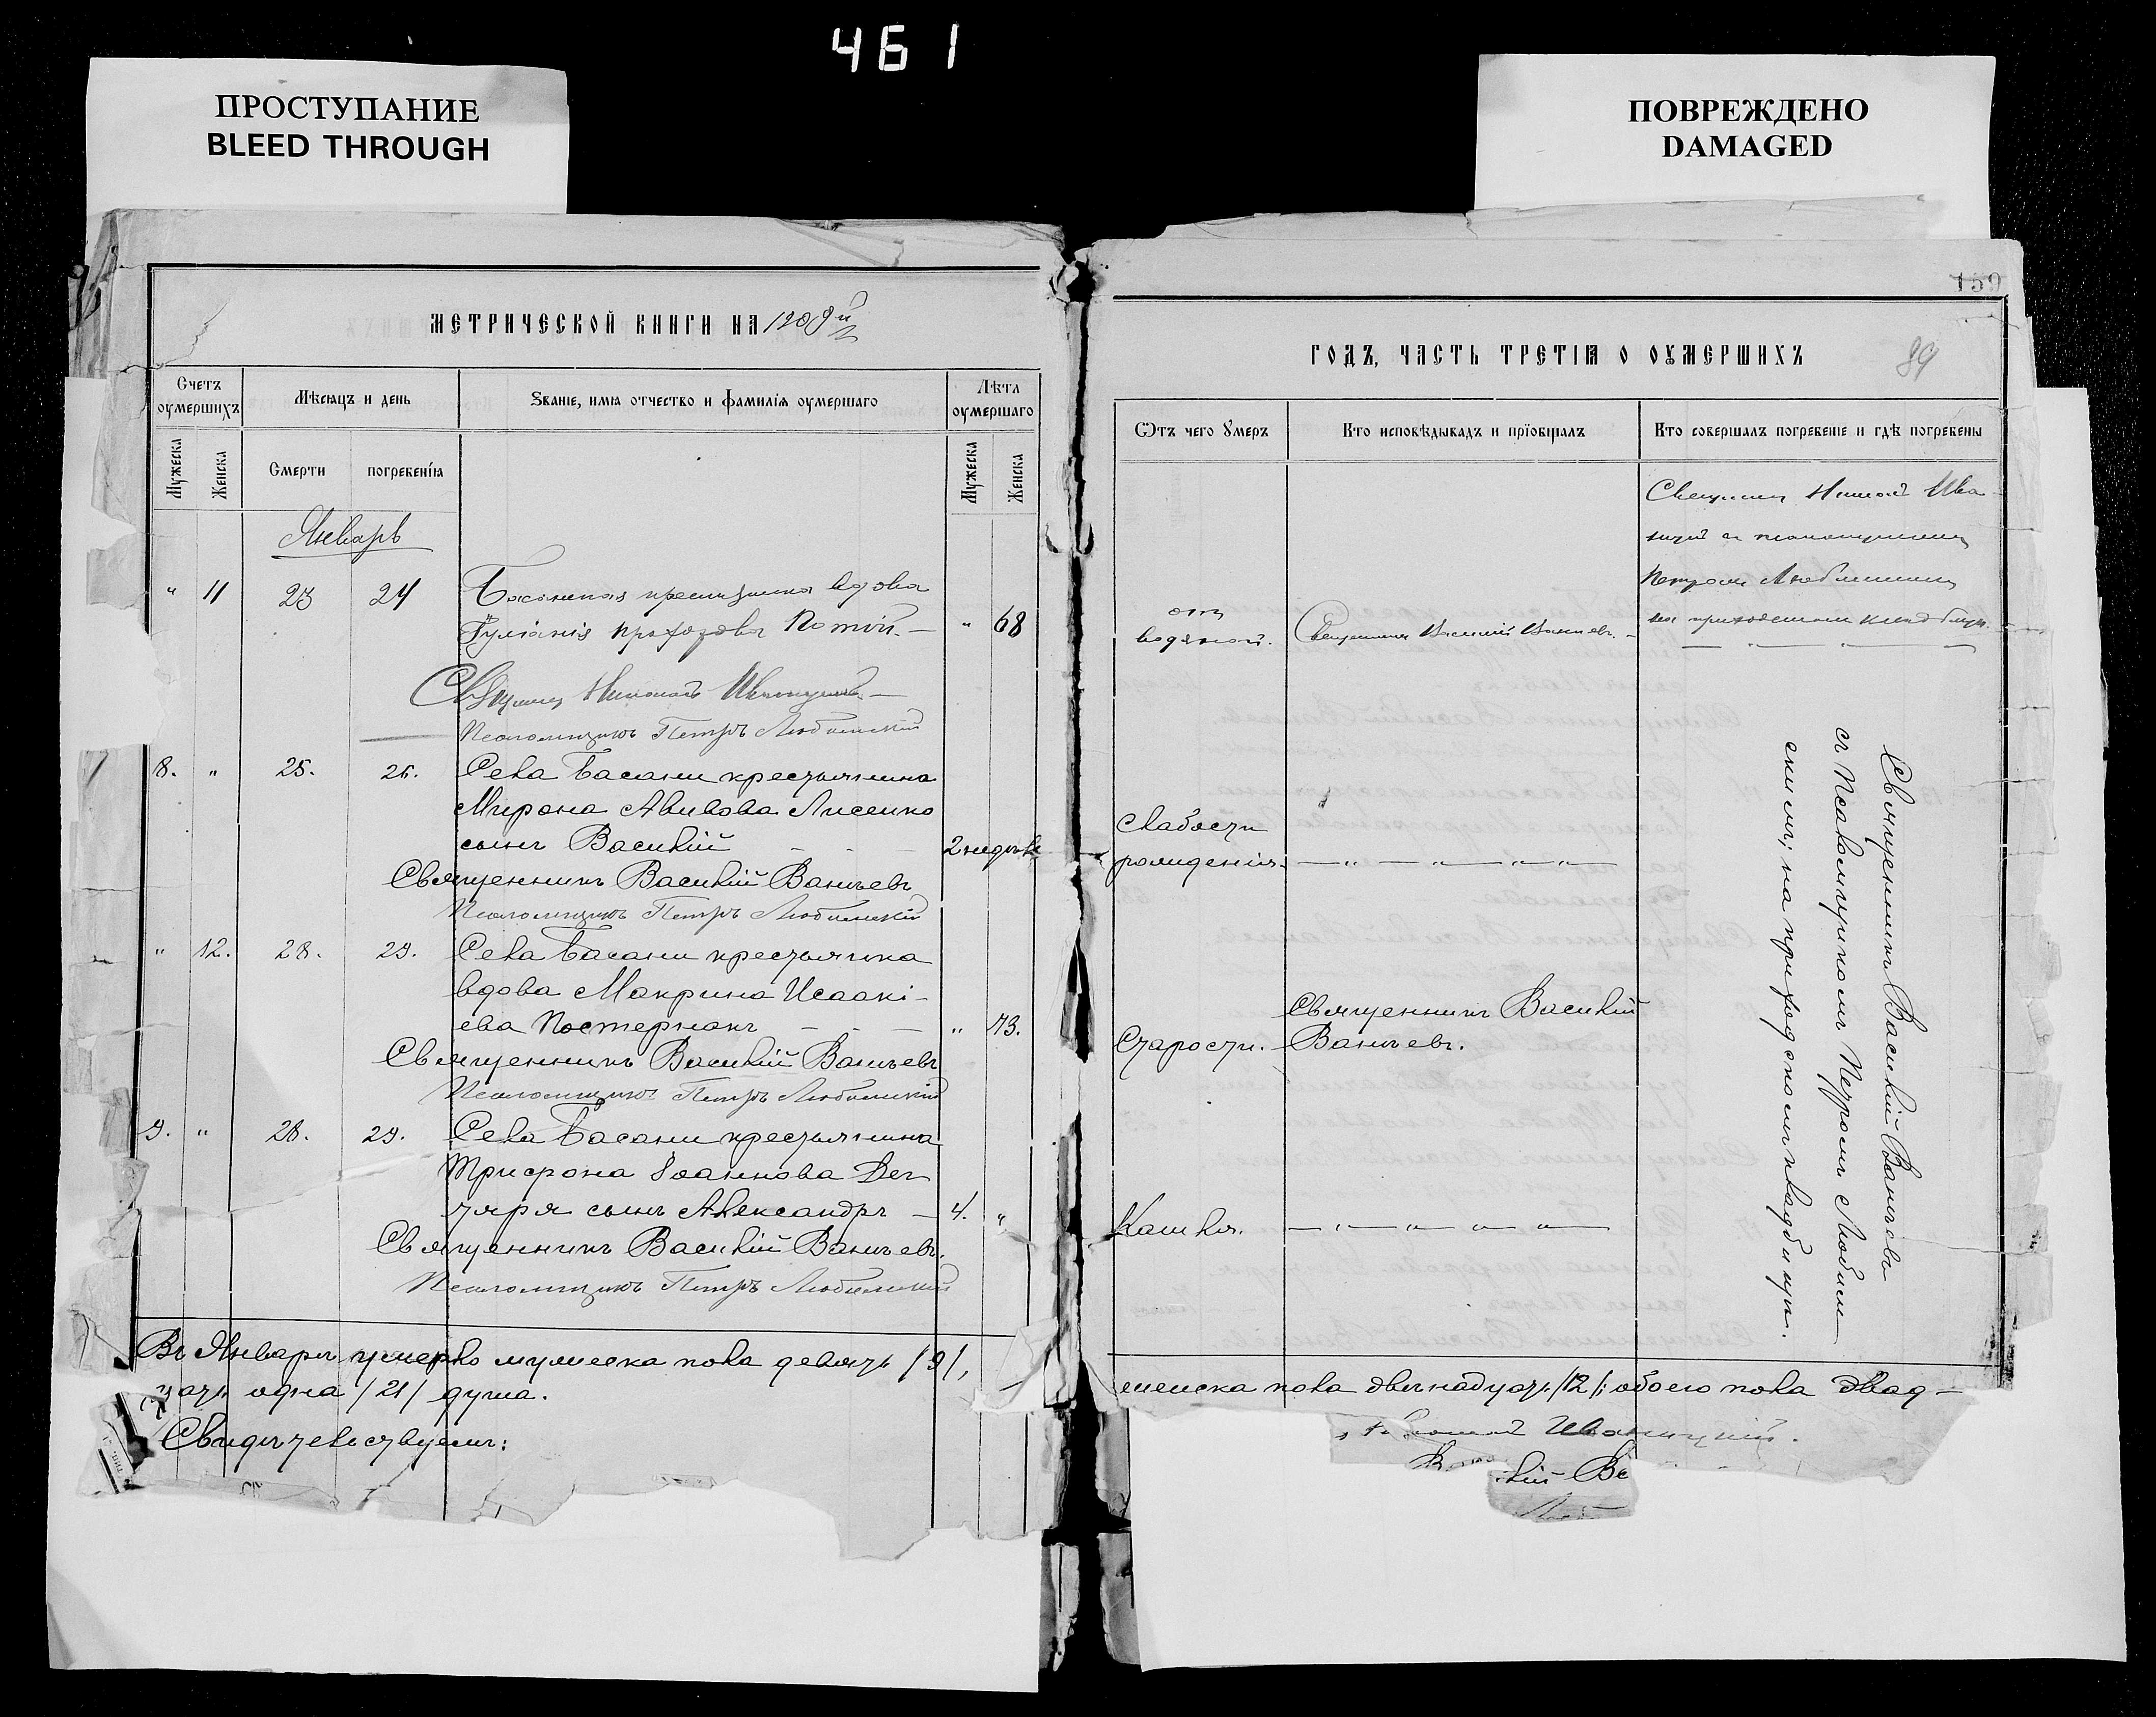 461
ПРОСТУПАНИЕ
BLEED THROUGH
ПОВРЕЖДЕНО
DAMAGED
МЕТРИЧЕСКОЙ КНИГИ НА 1909й
Счетъ оумершихъ
Мѣсяцъ и день
Званіе, имя отчество и фамилія оумершаго
Лѣта оумершаго
Мужеска
Женска
Смерти
погребенія
Мужеска
Женска
Январь
" 11 23 24 Басанская крестьянка вдова
Іуліанія Потій. — " 68
Священникъ Николай
Псаломщикъ Петръ Любимскій
8. " 25. 26. Села Басани крестьянина
Мирона Авивова Лисенко
сынъ Василій - - — 2 недѣль
Священникъ Василій Ваньевъ
Псаломщикъ Петръ Любимскій
" 12. 28. 29. Села Басани крестьянка
вдова Макрина Исаакі-
ева Постернакъ - - — " 73.
Священникъ Василій Ваньевъ
Псаломщикъ Петръ Любимскій
9. " 28. 29. Села Басани крестьянина
Трифона Іоаннова Дег
тяря сынъ Александръ — 4. "
Священникъ Василій Ваньевъ.
Псаломщикъ Петръ Любимскій
Въ Январѣ умерло мужеска пола девять /9/,
цать одна /21/ душа.
Свидѣтельствуемъ:
159
ГОДЪ, ЧАСТЬ ТРЕТІЯ О ОУМЕРШИХЪ
89
Отъ чего умеръ
Кто исповѣдывалъ и пріобщалъ
Кто совершалъ погребеніе и гдѣ погребены
Священникъ Николай Ива-
ницкій съ псаломщикомъ
Петромъ Любимскимъ
на приходскомъ кладбищѣ.
отъ
водяной.
Священникъ Василій Ваньевъ. —
Слабости
рожденія. — " — " — " — " —
Старости.
Священникъ Василій
Ваньевъ.
Кашля. — " — " — " — " —
Священникъ Василій Ваньевъ
съ Псаломщикомъ Петромъ Любим
скимъ; на приходскомъ кладбищѣ.
женска пола двѣнадцать /12/; обоего пола двад-
Николай Иваницкій.